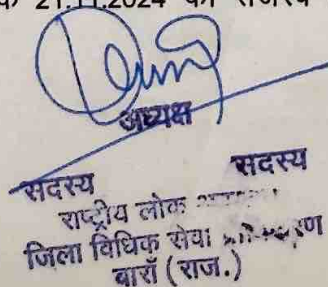 21.11.2024 को राजस्व
अध्यक्ष
सदस्य सदस्य
राष्ट्रीय लोक
जिला विधिक सेवा
बाराँ (राज.)